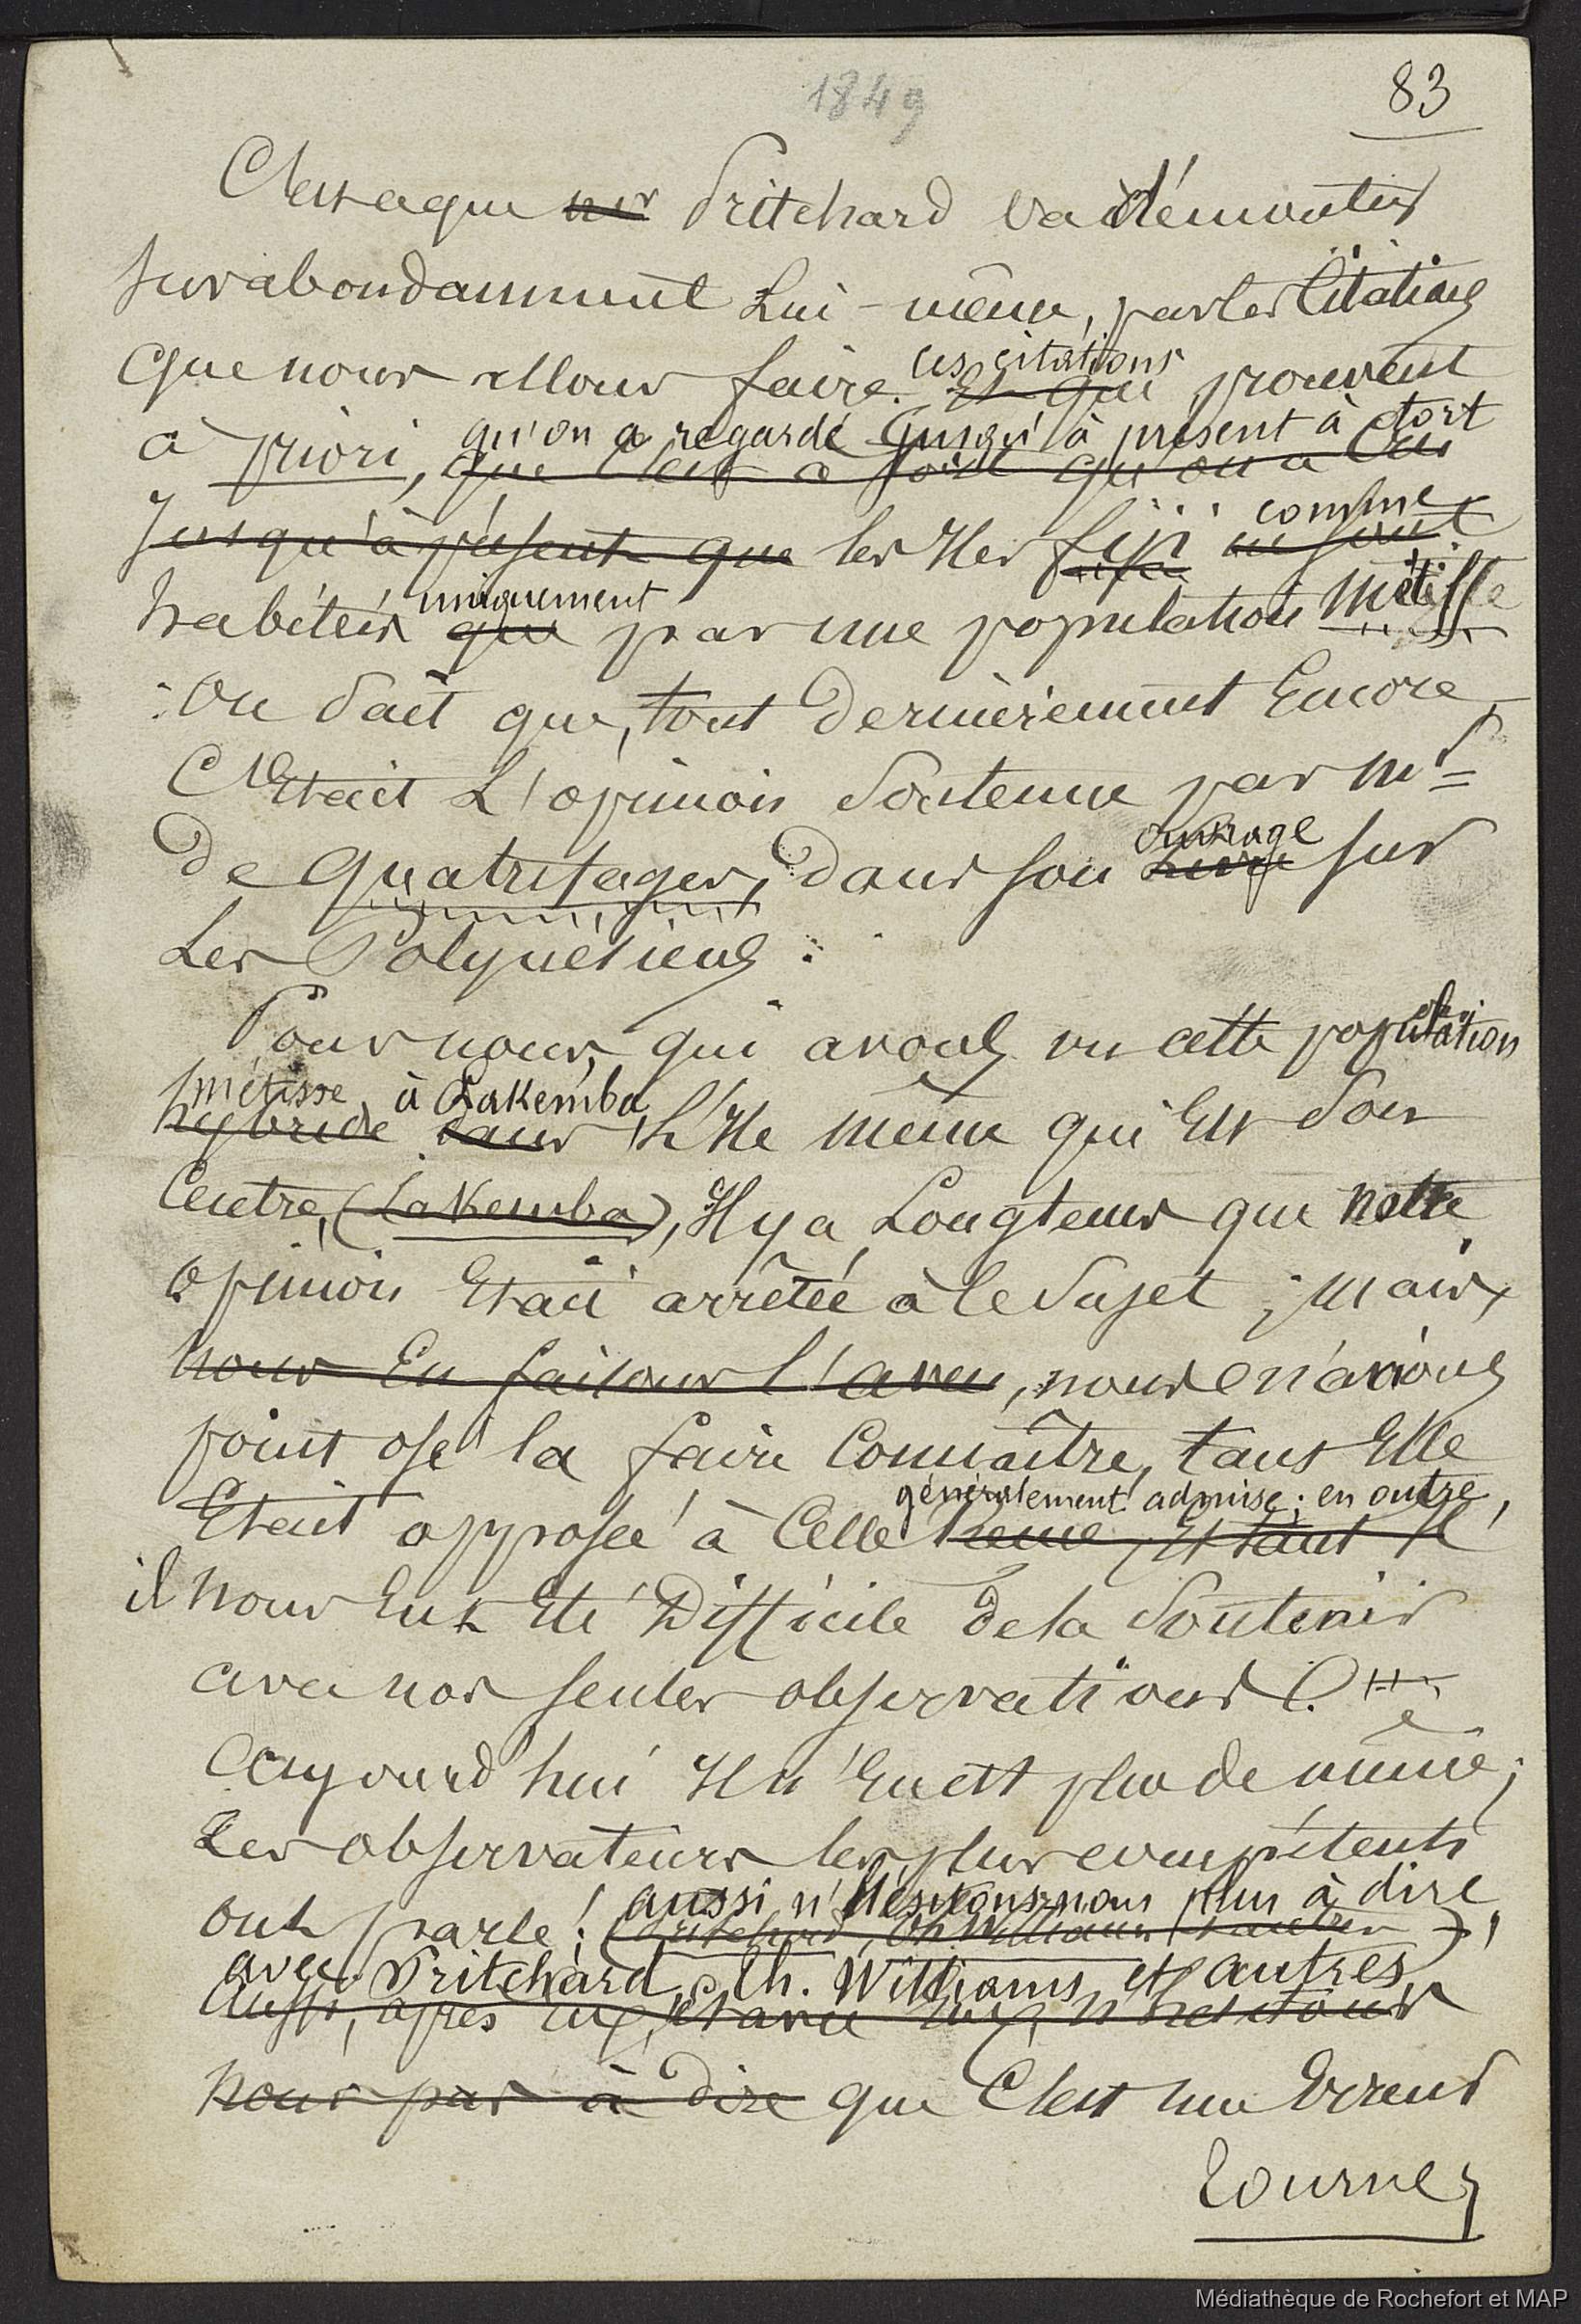 1849
83
C'est ce que mr Pritchard va démontrer
surabondamment Lui-même, par les Citations
que nous allons faire. ces citations Et qui prouvent
à priori, qu'on a regardé jusqu'à présent à tort
que c'est à tort qu'on a cru
jusqu'à présent que les Iles fiji comme ne sont
habitées uniquement que par une population métisse
: on sait que, tout dernièrement Encore,
C'Etait L'opinion Soutenue par Mr
De Quatrefages, dans son ouvrage Livre sur
Les Polynésiens :
Pour nous, qui avons vu cette population
métisse, à Lakemba,
hybride dans L'Ile même qui Est Son
Centre, (Lakemba), Il y a Longtems que notre
opinion Etait arrêtée à ce Sujet ; mais,
nous En faisons l'aveu, nous n'avions
point osé la faire Connaître, tant Elle
généralement admise ; en outre,
Etait opposée à Celle tenue, Et tant Il
il nous Eut Eté Difficile de la Soutenir
avec nos seules observations.
Aujourd'hui Il n'En est plus de même ;
Les observateurs les plus compétents
ont parlé ; aussi n'hésitons-nous plus à dire,
(Pritchard, Th. Williams, et autres) ;
avec Pritchard, Th. Williams et autres,
Aussi, après eux, et avec eux, n'hésitons
nous pas à dire que C'est une Erreur
Tournez
Médiathèque de Rochefort et MAP